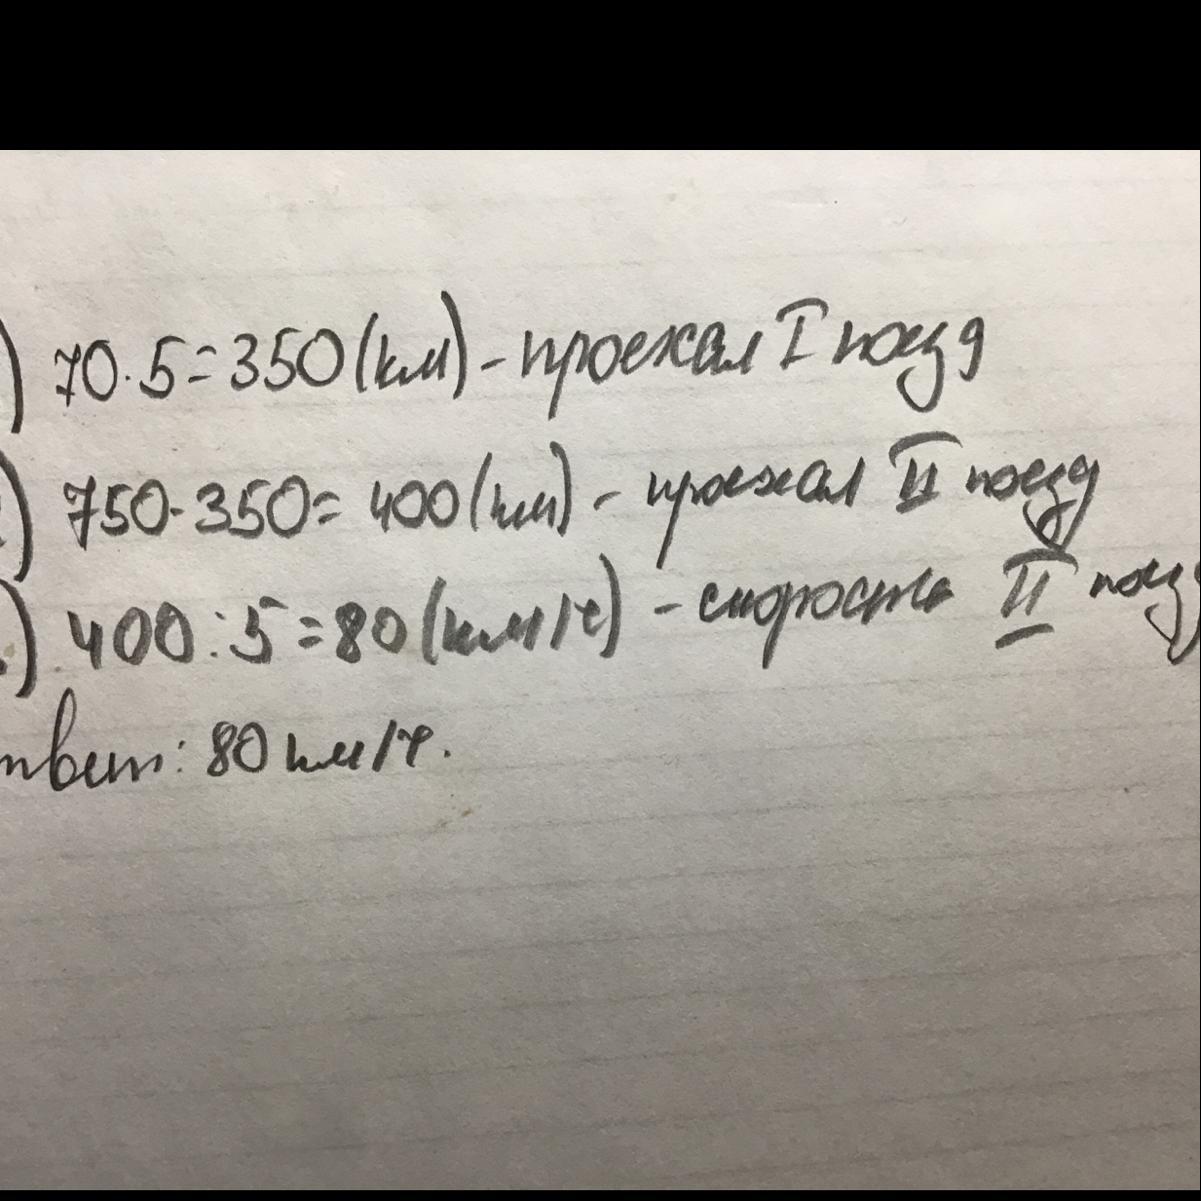 ) 70·5=350(км)-проехал I поезд
) 750-350=400(км)-проехал II поезд
.) 400:5=80(км/ч)-скорость II поезд
твет: 80 км/ч.